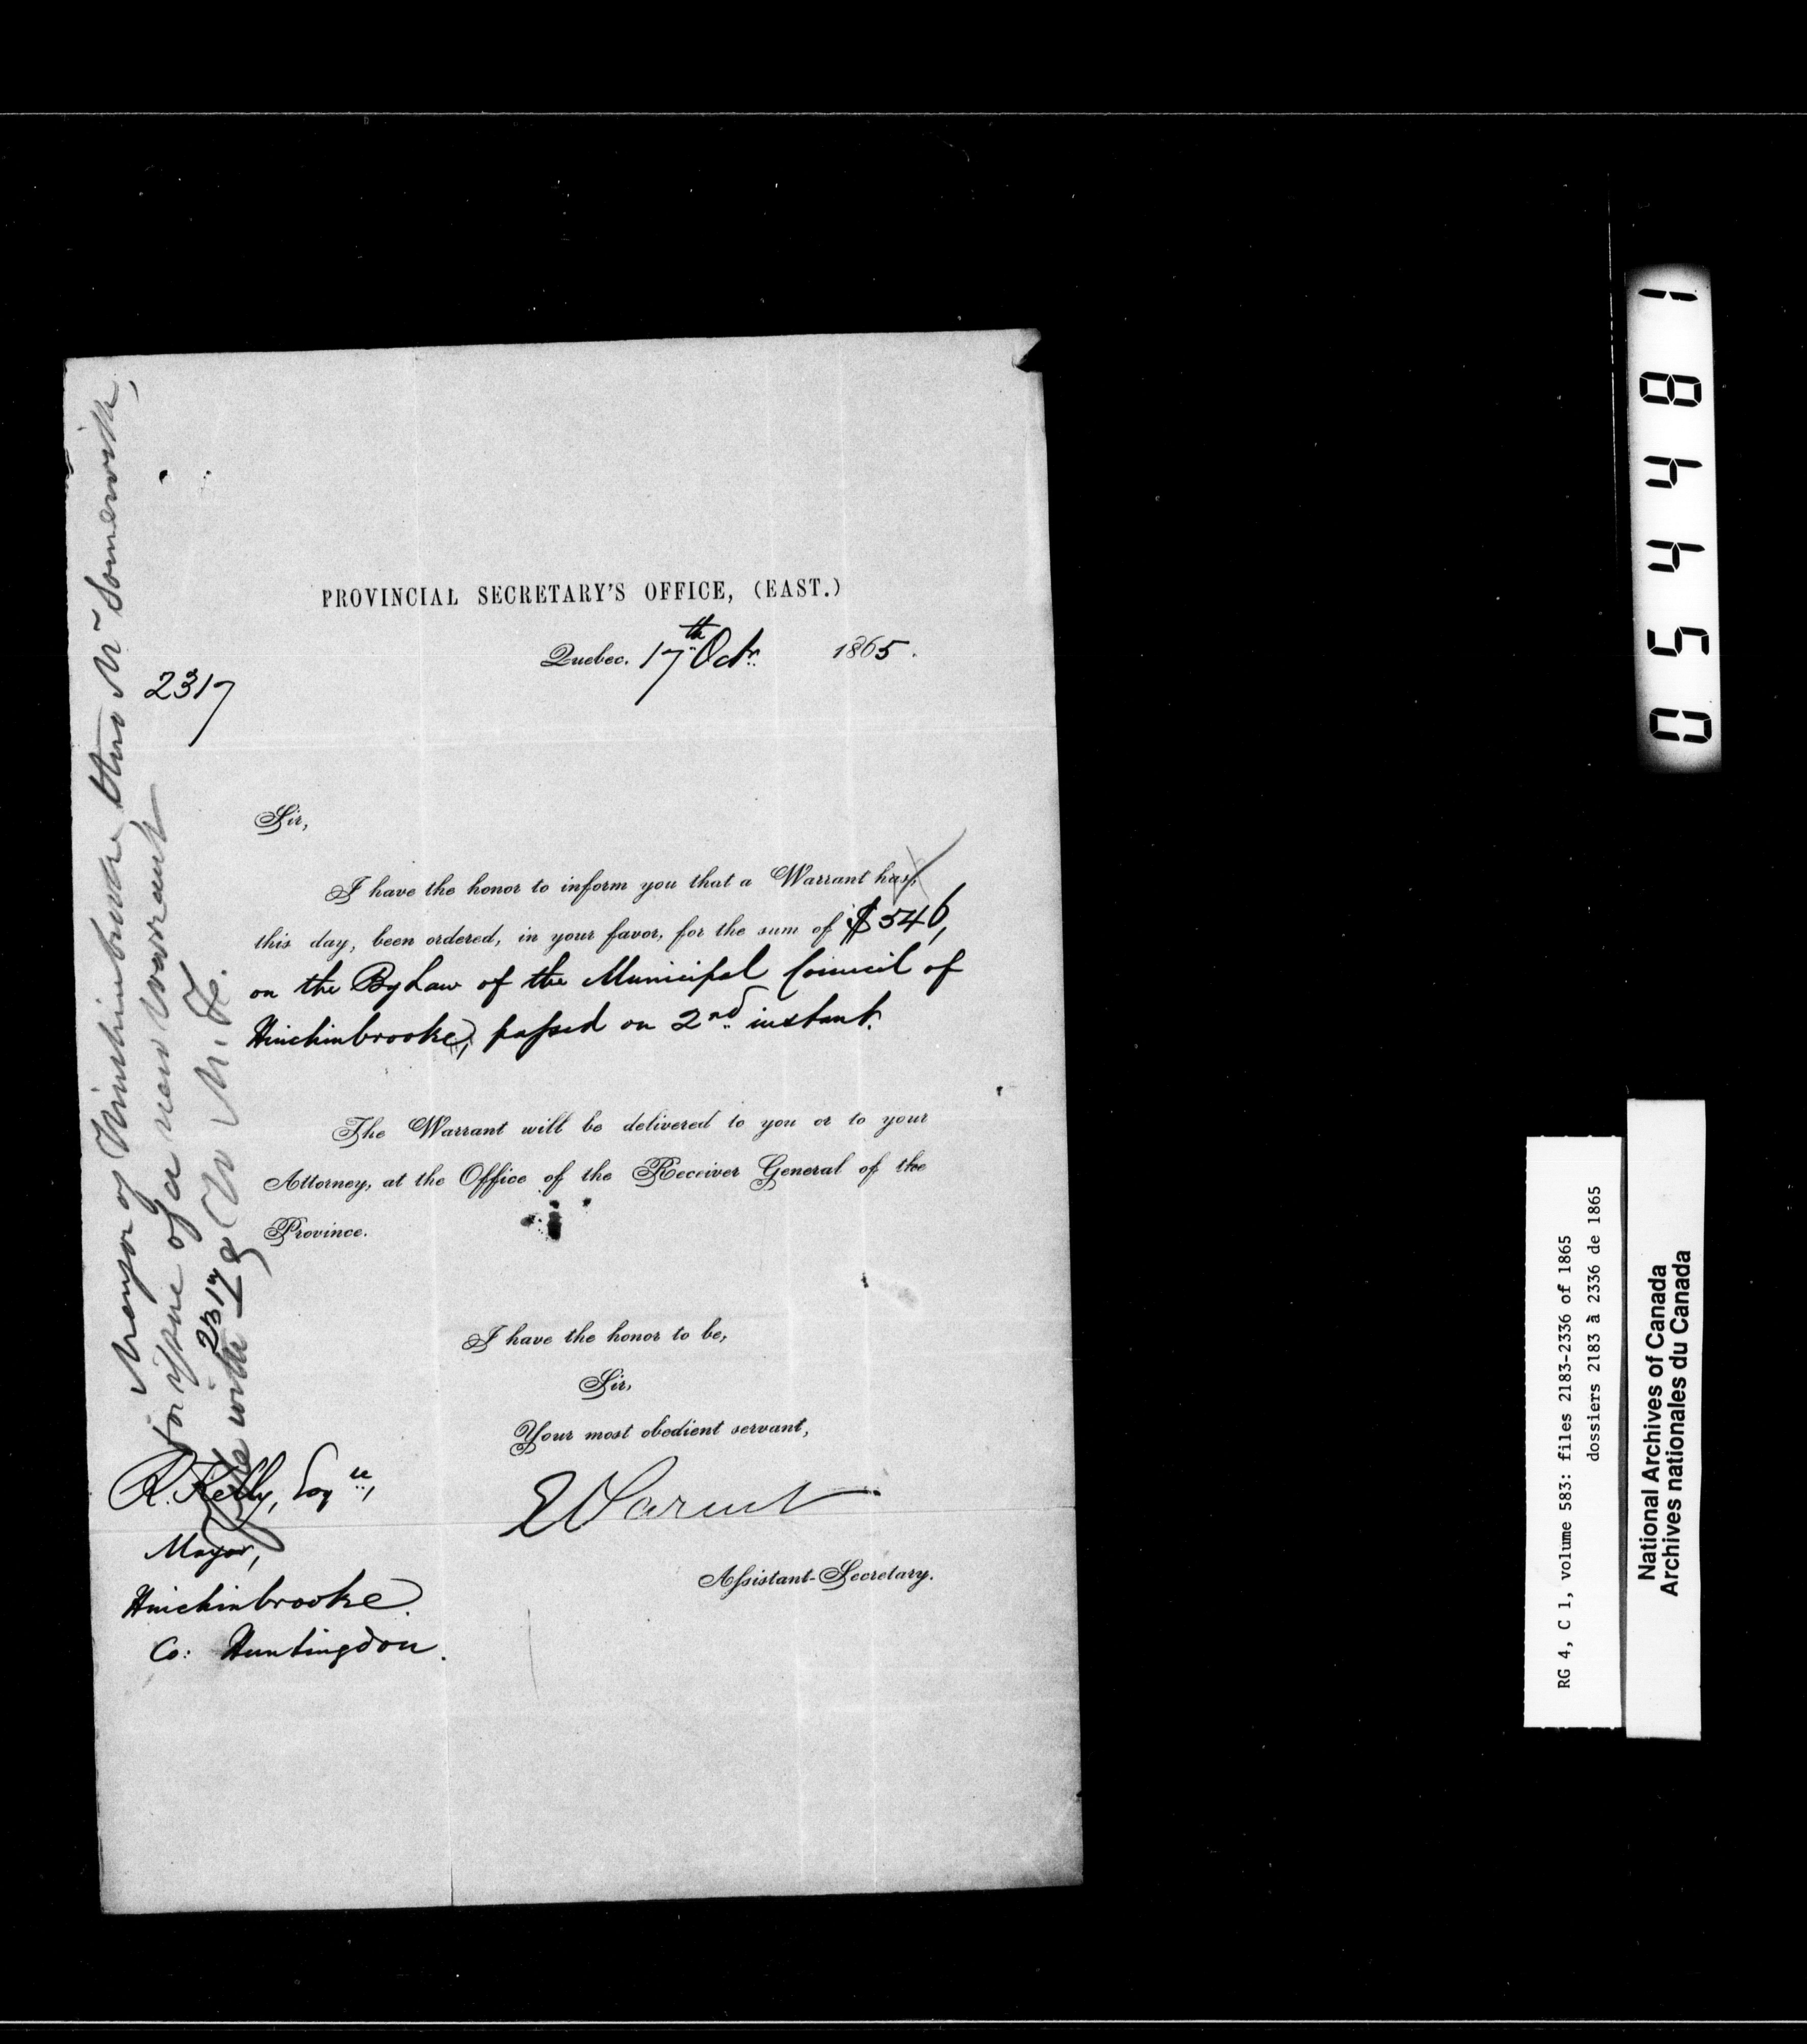 PROVINCIAL SECRETARY'S OFFICE, (EAST.)
Quebec. 17th Octr. 1865.
2317
Sir,
I have the honor to inform you that a Warrant has,
this day, been ordered, in your favor, for the sum of $546,
on the By Law of the Municipal Council of
Hinchinbrooke, passed on 2nd instant.
The Warrant will be delivered to you or to your
Attorney, at the Office of the Receiver General of the
Province.
I have the honor to be,
Sir,
Your most obedient servant,
E Parent
Assistant-Secretary.
R. Kelly, Esqre,
Mayor,
Hinchinbrooke.
Co: Huntingdon.
Mayor of Hinchinbrooke thro Mr Somerville,
for issue of a new warrant
2317
with
054481
RG 4, C 1, volume 583: files 2183-2336 of 1865
dossiers 2183 à 2336 de 1865
National Archives of Canada
Archives nationales du Canada